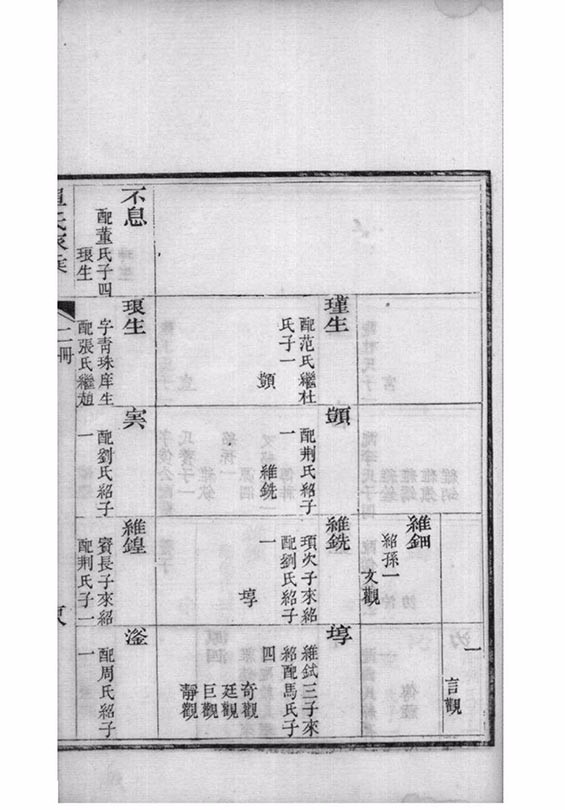 不息
配董氏子四
珢生
瑾生
配范氏繼杜
氏子一
顗
珢生
字青珠庠生
配張氏繼趙
顗
配荆氏紹子
一
維銑
配劉氏紹子
一
維鈿
紹孫一
文觀
維銑
項次子來紹
配劉氏紹子
一
埻
維鍠
賓長子來紹
配荆氏子一
一
言觀
埻
維鉽三子來
紹配馬氏子
四
奇觀
廷觀
巨觀
靜觀
滏
配周氏紹子
一
二冊